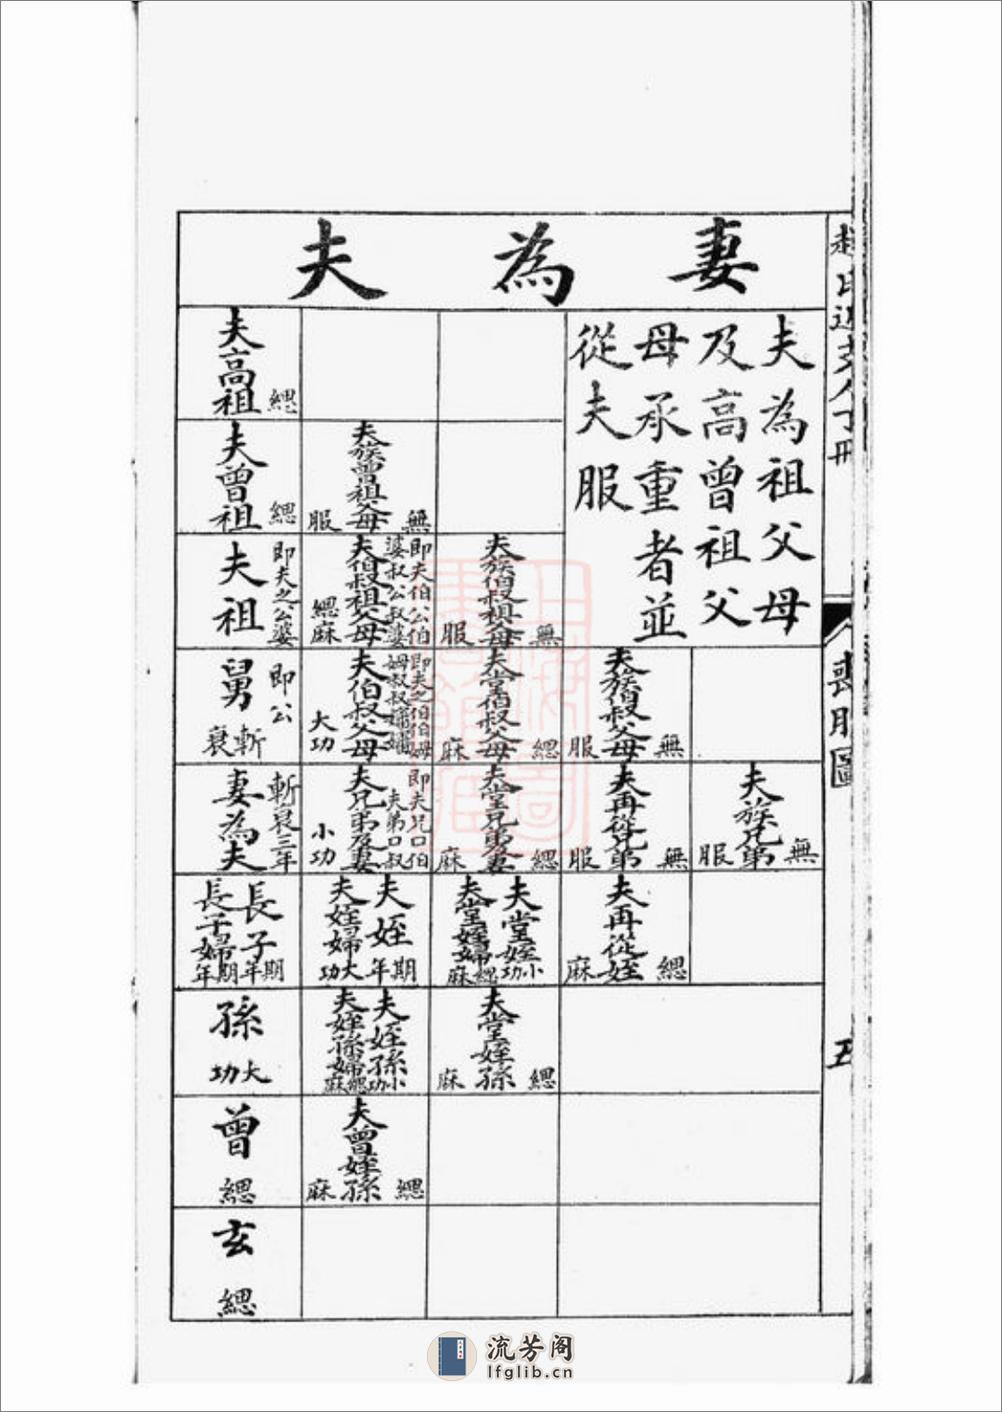 妻為夫
夫為祖父母
及高曾祖父
母承重者並
從夫服
夫高祖 緦
夫曾祖 緦
夫族曾祖父母 無服
夫祖 即夫之公婆
夫伯叔祖父母 即夫伯公伯婆叔公叔婆 緦麻
夫族伯叔祖父母 無服
舅 即公 斬衰
夫伯叔父母 即夫之伯伯姆姆叔叔嬸嬸 大功
夫堂伯叔父母 緦麻
夫族伯叔父母 無服
妻為夫 斬衰三年
夫兄弟及妻 即夫兄口伯夫弟口叔 小功
夫堂兄弟及妻 緦麻
夫再從兄弟 無服
夫族兄弟 無服
長子 期年
長子婦 期年
夫姪 期年
夫姪婦 大功
夫堂姪 小功
夫堂姪婦 緦麻
夫再從姪 緦麻
孫 大功
夫姪孫 小功
夫姪孫婦 緦麻
夫堂姪孫 緦麻
曾 緦
夫曾姪孫 緦麻
玄 緦
喪服圖
五
流芳阁
lfglib.cn